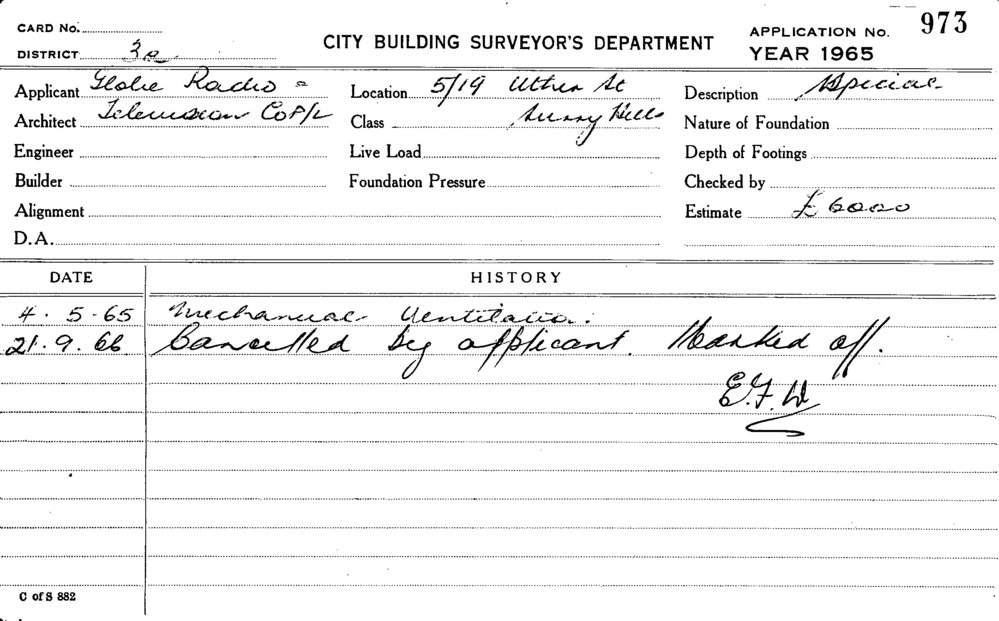 973
CARD No.
APPLICATION No.
DISTRICT 3a
CITY BUILDING SURVEYOR'S DEPARTMENT
YEAR 1965
Applicant Globe Radio =
Location 5/19 Uther St
Description Special
Architect Television Co P/L
Class Surry Hills
Nature of Foundation
Engineer
Live Load
Depth of Footings
Builder
Foundation Pressure
Checked by
Alignment
Estimate £6000
D.A.
DATE HISTORY
4.5.65 Mechanical Ventilation.
21.9.66 Cancelled by applicant. Marked off.
E.F.W
C of S 882